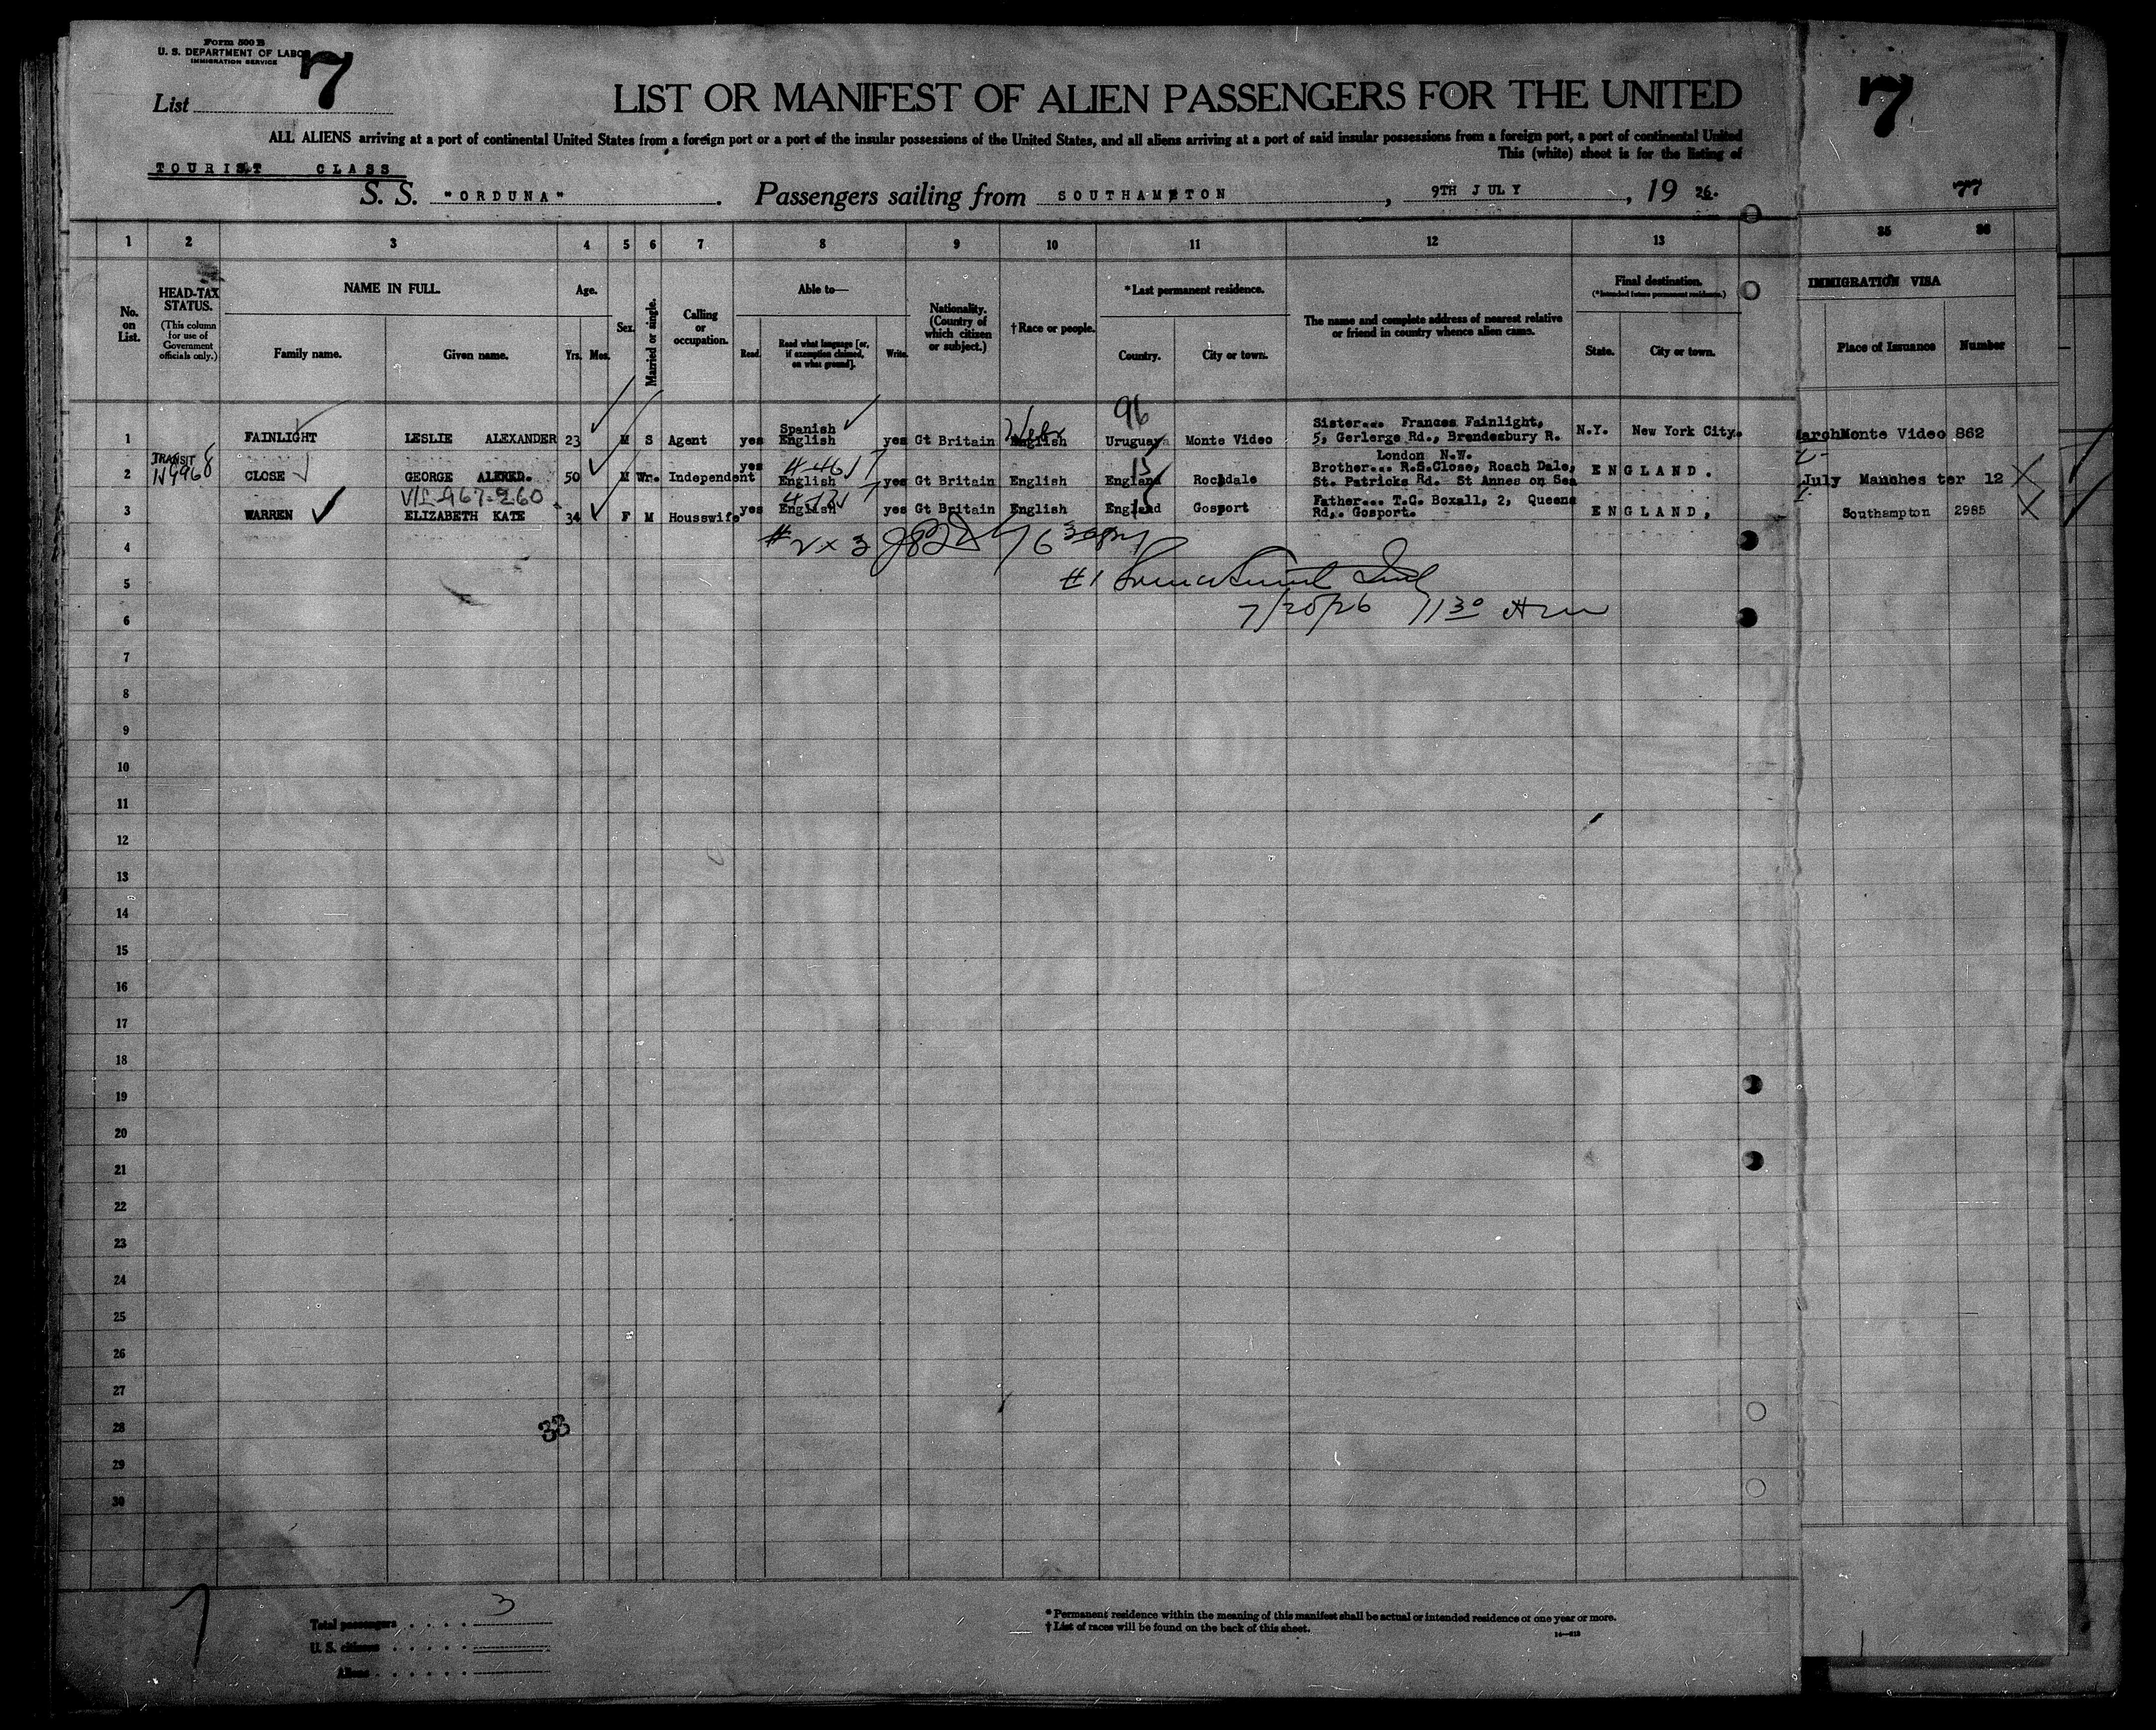 Form 500 B
U. S. DEPARTMENT OF LABOR
IMMIGRATION SERVICE
List 7
LIST OR MANIFEST OF ALIEN PASSENGERS FOR THE UNITED
7
ALL ALIENS arriving at a port of continental United States from a foreign port or a port of the insular possessions of the United States, and all aliens arriving at a port of said insular possessions from a foreign port, a port of continental United
This (white) sheet is for the listing of
TOURIST CLASS
S. S. "ORDUNA". Passengers sailing from SOUTHAMPTON, 9TH JULY, 19 26.
77
1 2 3 4 5 6 7 8 9 10 11 12 13 35 36
No. on List.
HEAD-TAX STATUS. (This column for use of Government officials only.)
NAME IN FULL.
Family name. Given name.
Age.
Yrs. Mos.
Sex.
Married or single.
Calling or occupation.
Able to—
Read. Read what language [or, if exemption claimed, on what ground]. Write.
Nationality. (Country of which citizen or subject.)
†Race or people.
*Last permanent residence.
Country. City or town.
The name and complete address of nearest relative or friend in country whence alien came.
Final destination.
(*Intended future permanent residence.)
State. City or town.
IMMIGRATION VISA
Place of Issuance Number
96
1 FAINLIGHT LESLIE ALEXANDER 23 M S Agent yes Spanish English yes Gt Britain English Uruguay Monte Video Sister... Frances Fainlight, 5, Gerlerge Rd., Brendesbury R. London N.W. N.Y. New York City. March Monte Video 862
TRANSIT
2 CLOSE GEORGE ALFRED. 50 M Wr. Independent yes English yes Gt Britain English England Rochdale Brother... R.S.Close, Roach Dale, St. Patricks Rd. St Annes on Sea ENGLAND. July Manches ter 12
3 WARREN ELIZABETH KATE 34 F M Housswife yes English yes Gt Britain English England Gosport Father... T.G. Boxall, 2, Queens Rd,. Gosport. ENGLAND, Southampton 2985
4
5 #1
6 7/20/26 11 30 AM
7
8
9
10
11
12
13
14
15
16
17
18
19
20
21
22
23
24
25
26
27
28 33
29
30
Total passengers . . . . 3
U. S. citizens . . . . .
Aliens . . . . . .
* Permanent residence within the meaning of this manifest shall be actual or intended residence of one year or more.
† List of races will be found on the back of this sheet.